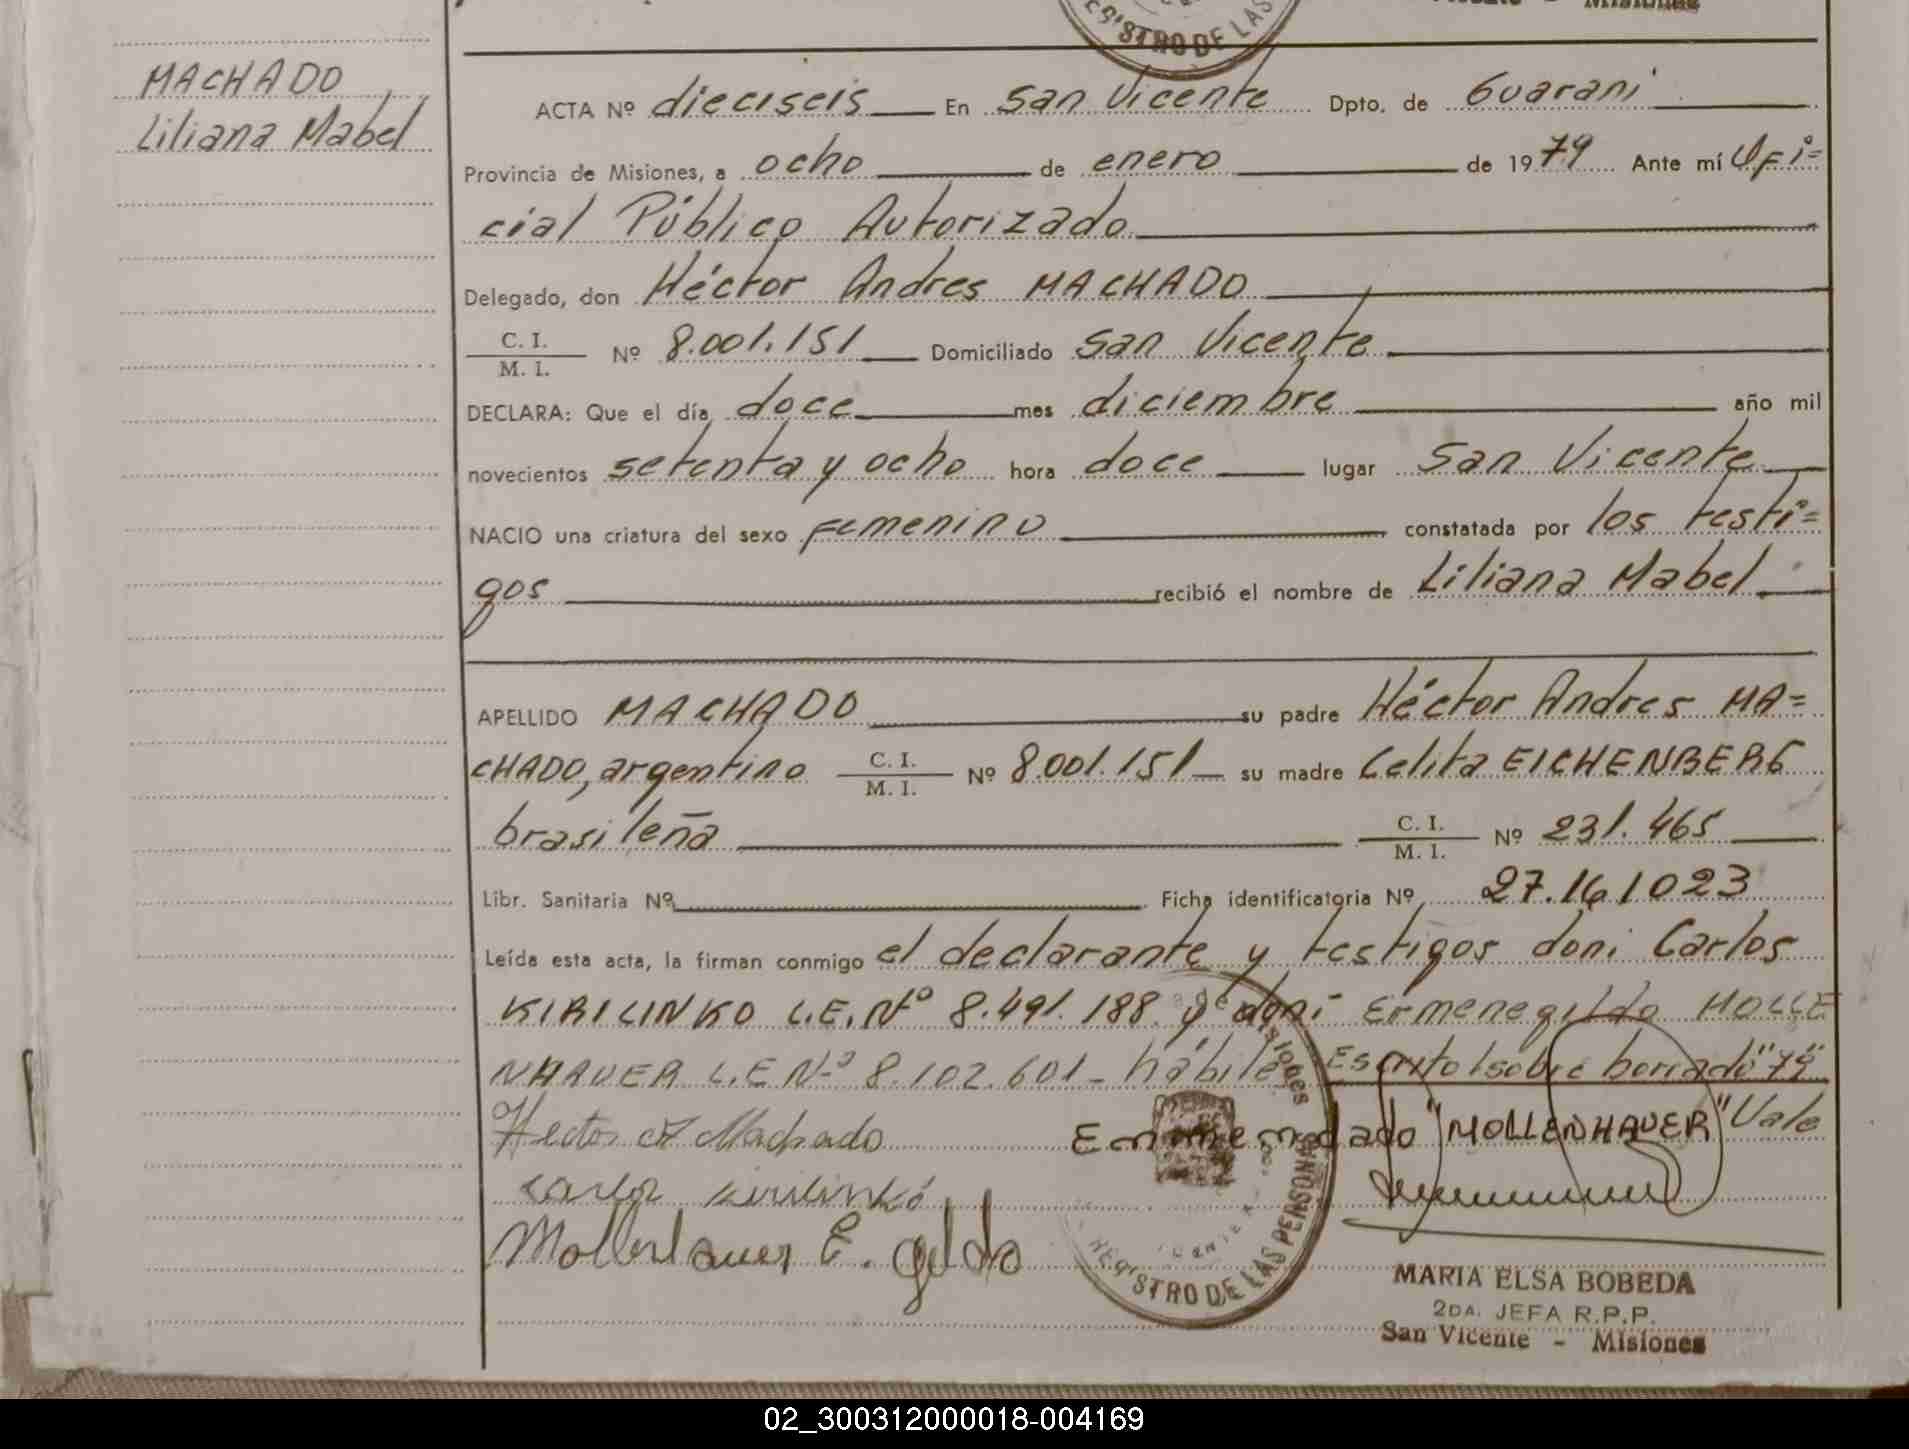 Misiones
REG'STRO DE LAS
MACHADO
Liliana Mabel
ACTA Nº dieciseis En San Vicente Dpto. de Guaraní
Provincia de Misiones, a ocho de enero de 1979 Ante mí Ofi=
cial Público Autorizado
Delegado, don Héctor Andres MACHADO
C. I.
M. I. Nº 8.001.151 Domiciliado San Vicente
DECLARA: Que el día doce mes diciembre año mil
novecientos setenta y ocho hora doce lugar San Vicente
NACIO una criatura del sexo Femenino constatada por los testi=
gos recibió el nombre de Liliana Mabel
APELLIDO MACHADO su padre Héctor Andres MA=
CHADO, argentino C. I. M. I. Nº 8.001.151 su madre Celita EICHENBERG
brasileña C. I. M. I. Nº 231.465
Libr. Sanitaria Nº Ficha identificatoria Nº 27.161023
Leída esta acta, la firman conmigo el declarante y testigos don: Carlos
KIRILINKO L.E.Nº 8.491.188 y don: Ermenegildo MOLLE
NHAUER L.E Nº 8.102.601 - hábiles Escrito sobre borrado "79"
Hector A Machado Enmendado "MOLLENHAUER" Vale
Carlos Kirilinko
Mollenhauer E. gildo
REG'STRO DE LAS PERSONAS
MARIA ELSA BOBEDA
2DA. JEFA R.P.P.
San Vicente - Misiones
02_300312000018-004169